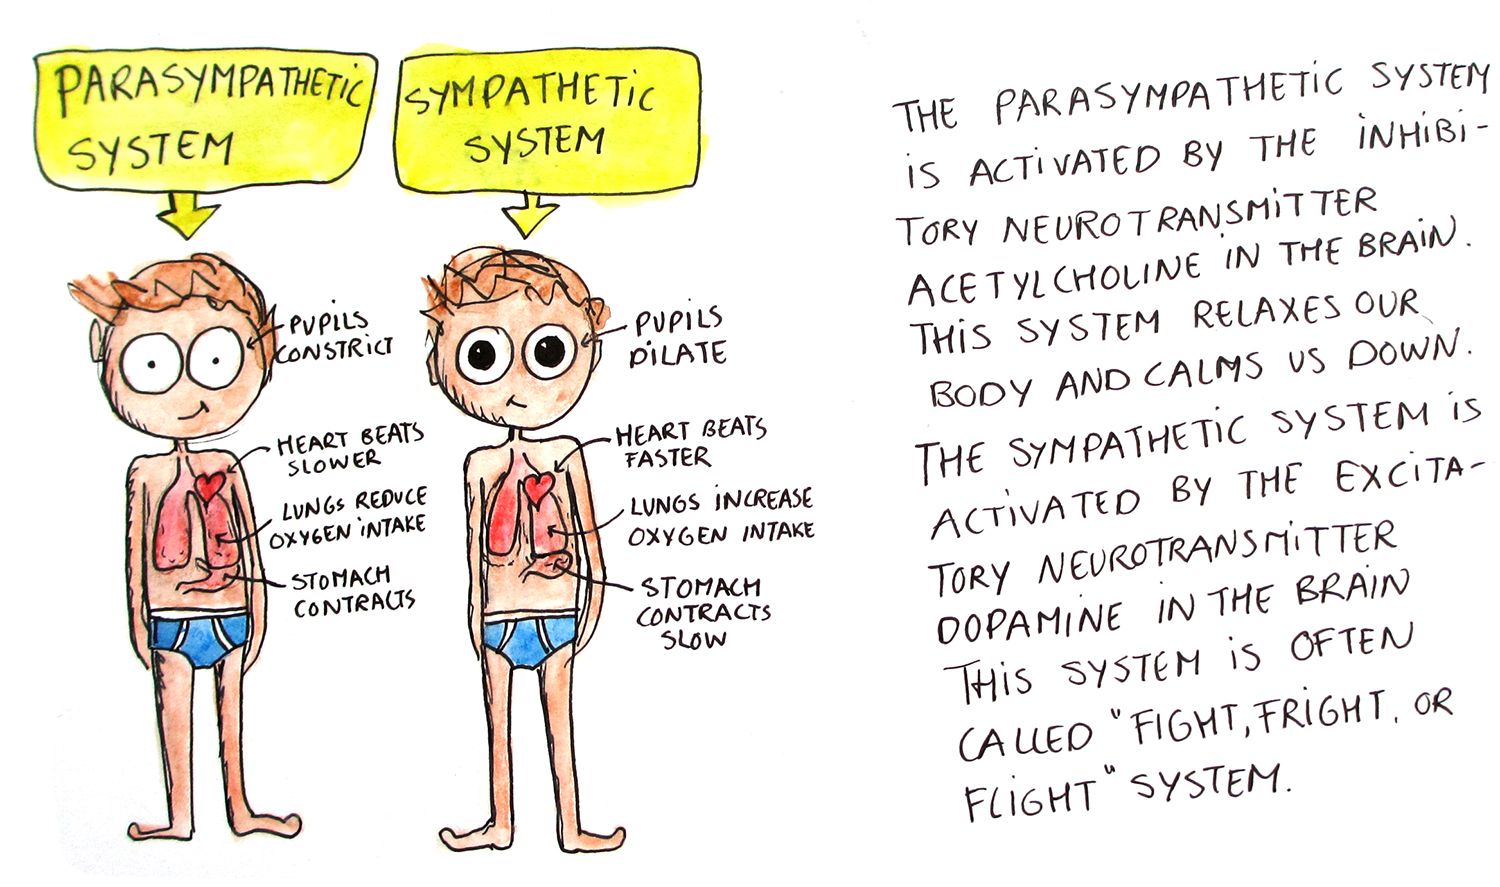 PARASYMPATHETIC
SYSTEM
PUPILS
CONSTRICT
HEART BEATS
SLOWER
LUNGS REDUCE
OXYGEN INTAKE
STOMACH
CONTRACTS
SYMPATHETIC
SYSTEM
PUPILS
DILATE
HEART BEATS
FASTER
LUNGS INCREASE
OXYGEN INTAKE
STOMACH
CONTRACTS
SLOW
THE PARASYMPATHETIC SYSTEM
IS ACTIVATED BY THE INHIBI-
TORY NEUROTRANSMITTER
ACETYLCHOLINE IN THE BRAIN.
THIS SYSTEM RELAXES OUR
BODY AND CALMS US DOWN.
THE SYMPATHETIC SYSTEM IS
ACTIVATED BY THE EXCITA-
TORY NEUROTRANSMITTER
DOPAMINE IN THE BRAIN
THIS SYSTEM IS OFTEN
CALLED "FIGHT, FRIGHT, OR
FLIGHT" SYSTEM.